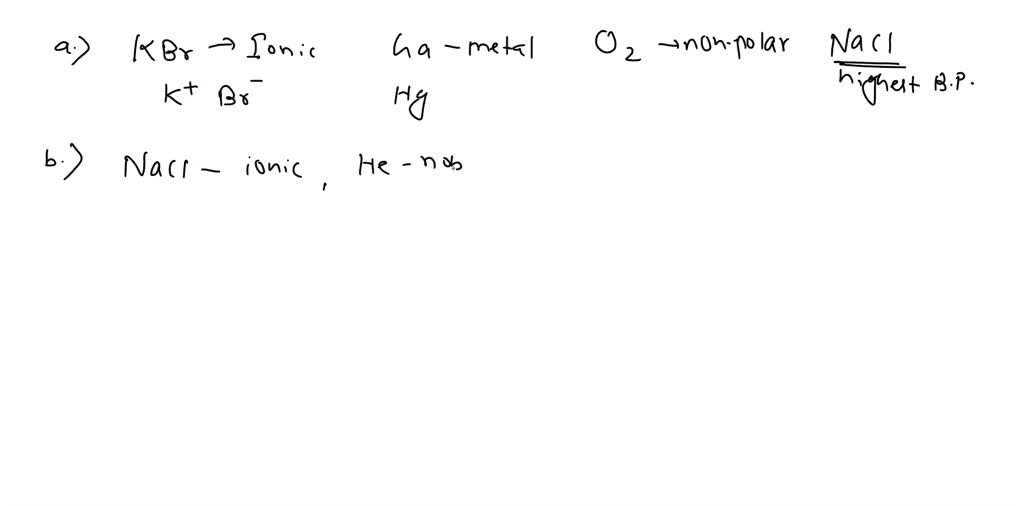 a.) KBr → Ionic Ga – metal O2 → non-polar NaCl
K+ Br- Hg highest B.P.
b.) NaCl – ionic, He – nob